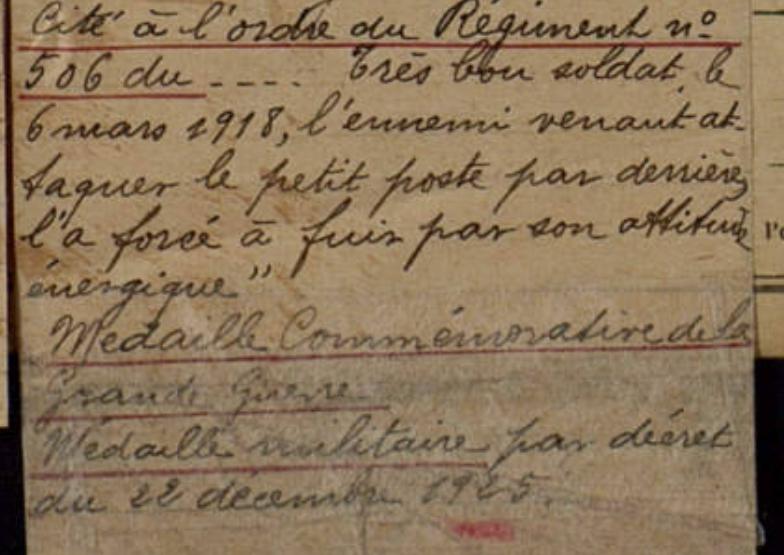 Cité à l'ordre du Régiment n°
506 du ---- Très bon soldat, le
6 mars 1918, l'ennemi venant at-
taquer le petit poste par derrière,
l'a forcé à fuir par son attitude
énergique"
Médaille Commémorative de la
Grande Guerre
Médaille militaire par décret
du 22 décembre 1925.